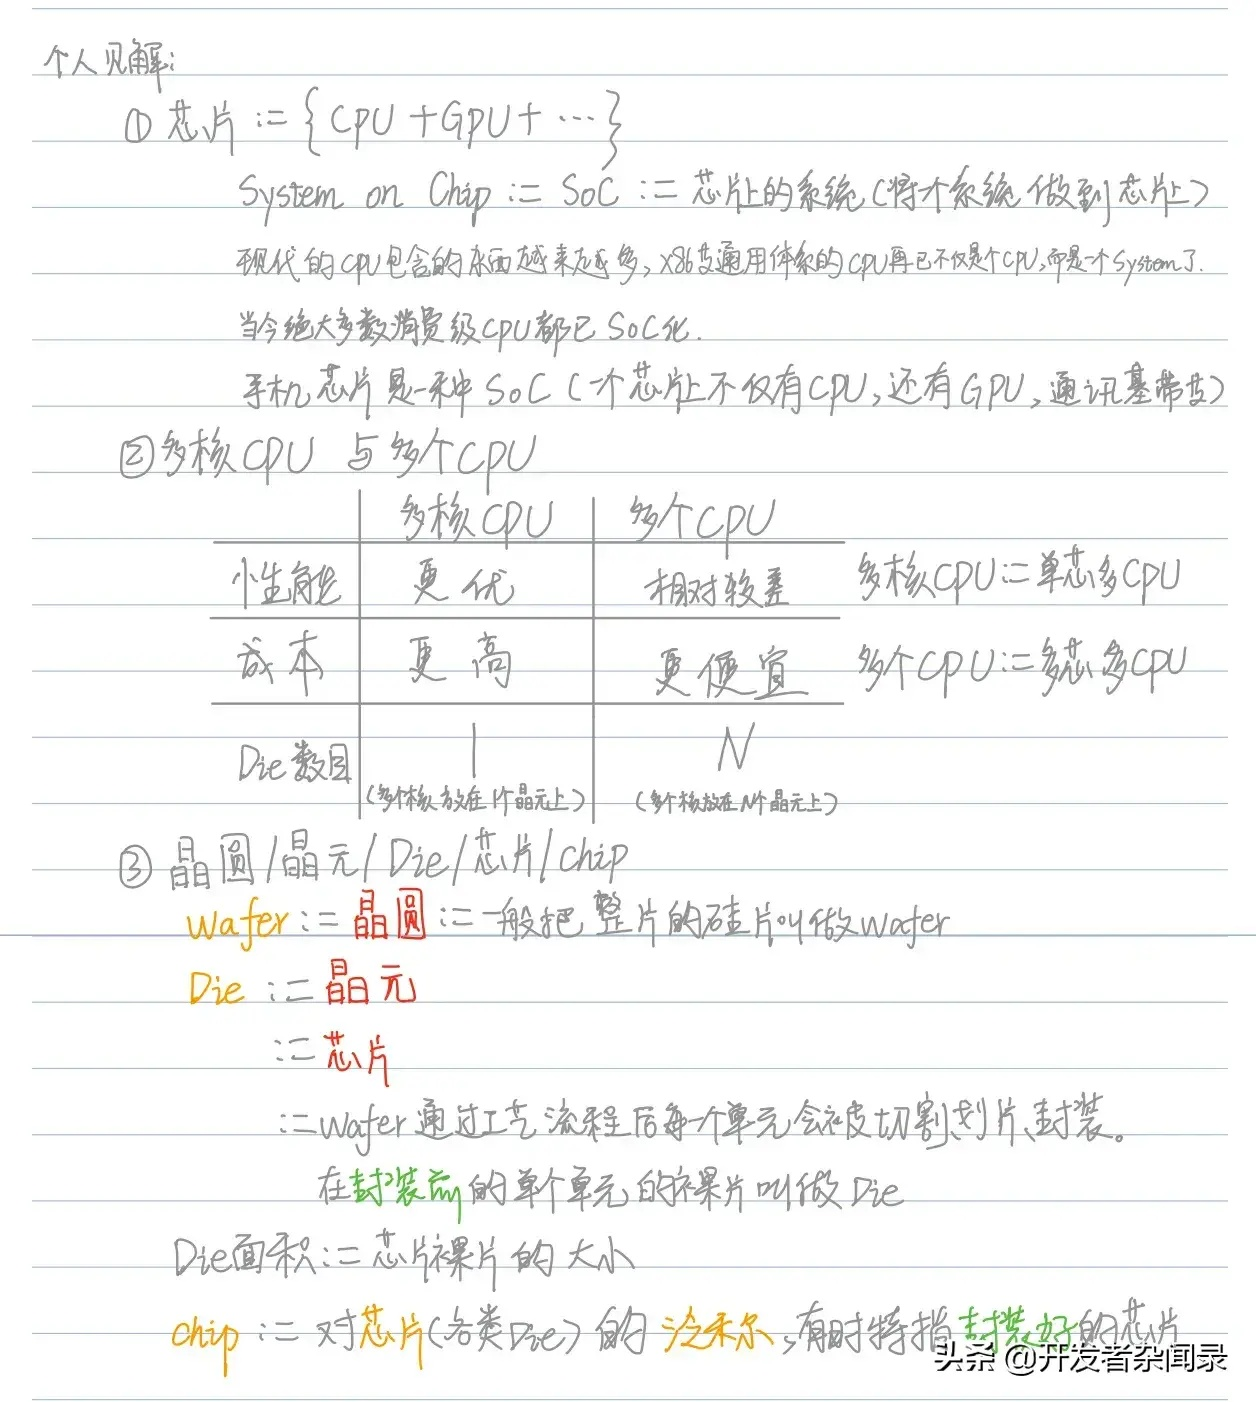 个人见解:
① 芯片 := {CPU+GPU+…}
System on Chip := SoC := 芯片上的系统(将个系统做到芯片上)
现代的CPU包含的东西越来越多,X86等通用体系的CPU再已不仅是个CPU,而是一个System了.
当今绝大多数消费级CPU都已SoC化.
手机芯片是一种SoC(一个芯片上不仅有CPU,还有GPU,通讯基带等)
②多核CPU 与多个CPU
多核CPU 多个CPU
性能 更优 相对较差 多核CPU:=单芯多CPU
成本 更高 更便宜 多个CPU:=多芯多CPU
Die数目 1 N
(多个核放在1个晶元上) (多个核放在N个晶元上)
③ 晶圆/晶元/Die/芯片/chip
Wafer := 晶圆 := 一般把整片的硅片叫做wafer
Die := 晶元
:= 芯片
:= Wafer通过工艺流程后每一个单元会被切割、划片、封装。
在封装前的单个单元的裸片叫做Die
Die面积 := 芯片裸片的大小
chip := 对芯片(各类Die)的泛称,有时特指封装好的芯片
头条 @开发者杂闻录